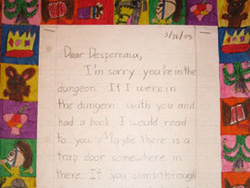 3/28/05
Dear Despereaux,
I'm sorry you're in the
dungeon. If I were in
the dungeon with you and
had a book I would read
to you. Maybe there is a
trap door somewhere in
there. If you climb through